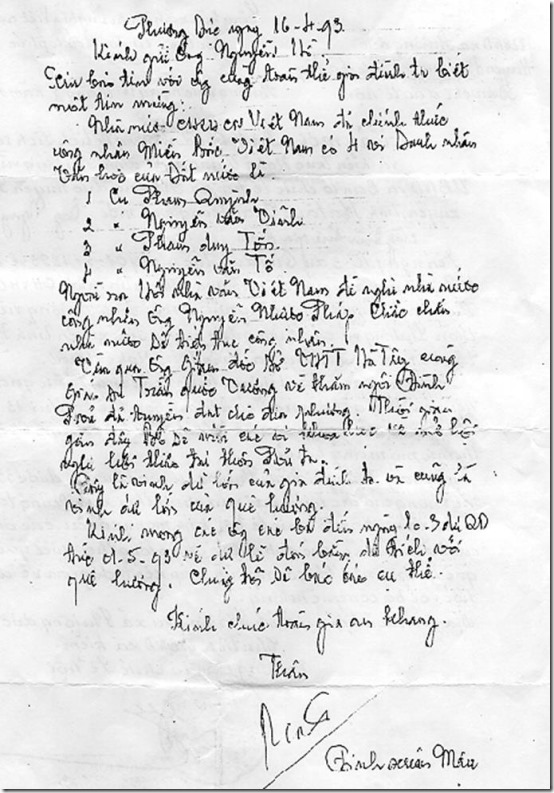 Phượng Dực ngày 16-4-93.
Kính gửi Ông Nguyễn
Tôi báo tin với Ông cùng toàn thể gia đình ta biết
một tin mừng:
Nhà nước CHXHCN Việt Nam đã chính thức
công nhận Miền Bắc Việt Nam có 4 vị Danh nhân
Văn hoá của Đất nước là
1 Cụ Phạm Quỳnh
2 " Nguyễn Văn Vĩnh
3 " Phạm duy Tốn.
4 " Nguyễn văn Tố.
Ngoài ra Hội nhà văn Việt Nam đề nghị nhà nước
công nhận Ông Nguyễn Nhược Pháp. Chắc chắn
nhà nước sẽ tiếp tục công nhận.
Vừa qua Ông Giám đốc Sở VHTT Hà Tây cùng
Giáo sư Trần quốc Vượng về thăm ngôi Đình
cho địa phương. Thời gian
gần đây Sở sẽ mời các
nghị hội thảo tại
là vinh dự lớn của gia đình ta và cũng là
vinh dự lớn của quê hương.
Kính mong các Ông các bà đến ngày 10-3 âl
tức 01-5-93 về dự lễ đón bằng di tích với
quê hương. Chúng tôi sẽ báo cáo cụ thể.
Kính chúc toàn gia an khang.
Thân
Đinh xuân Mậu